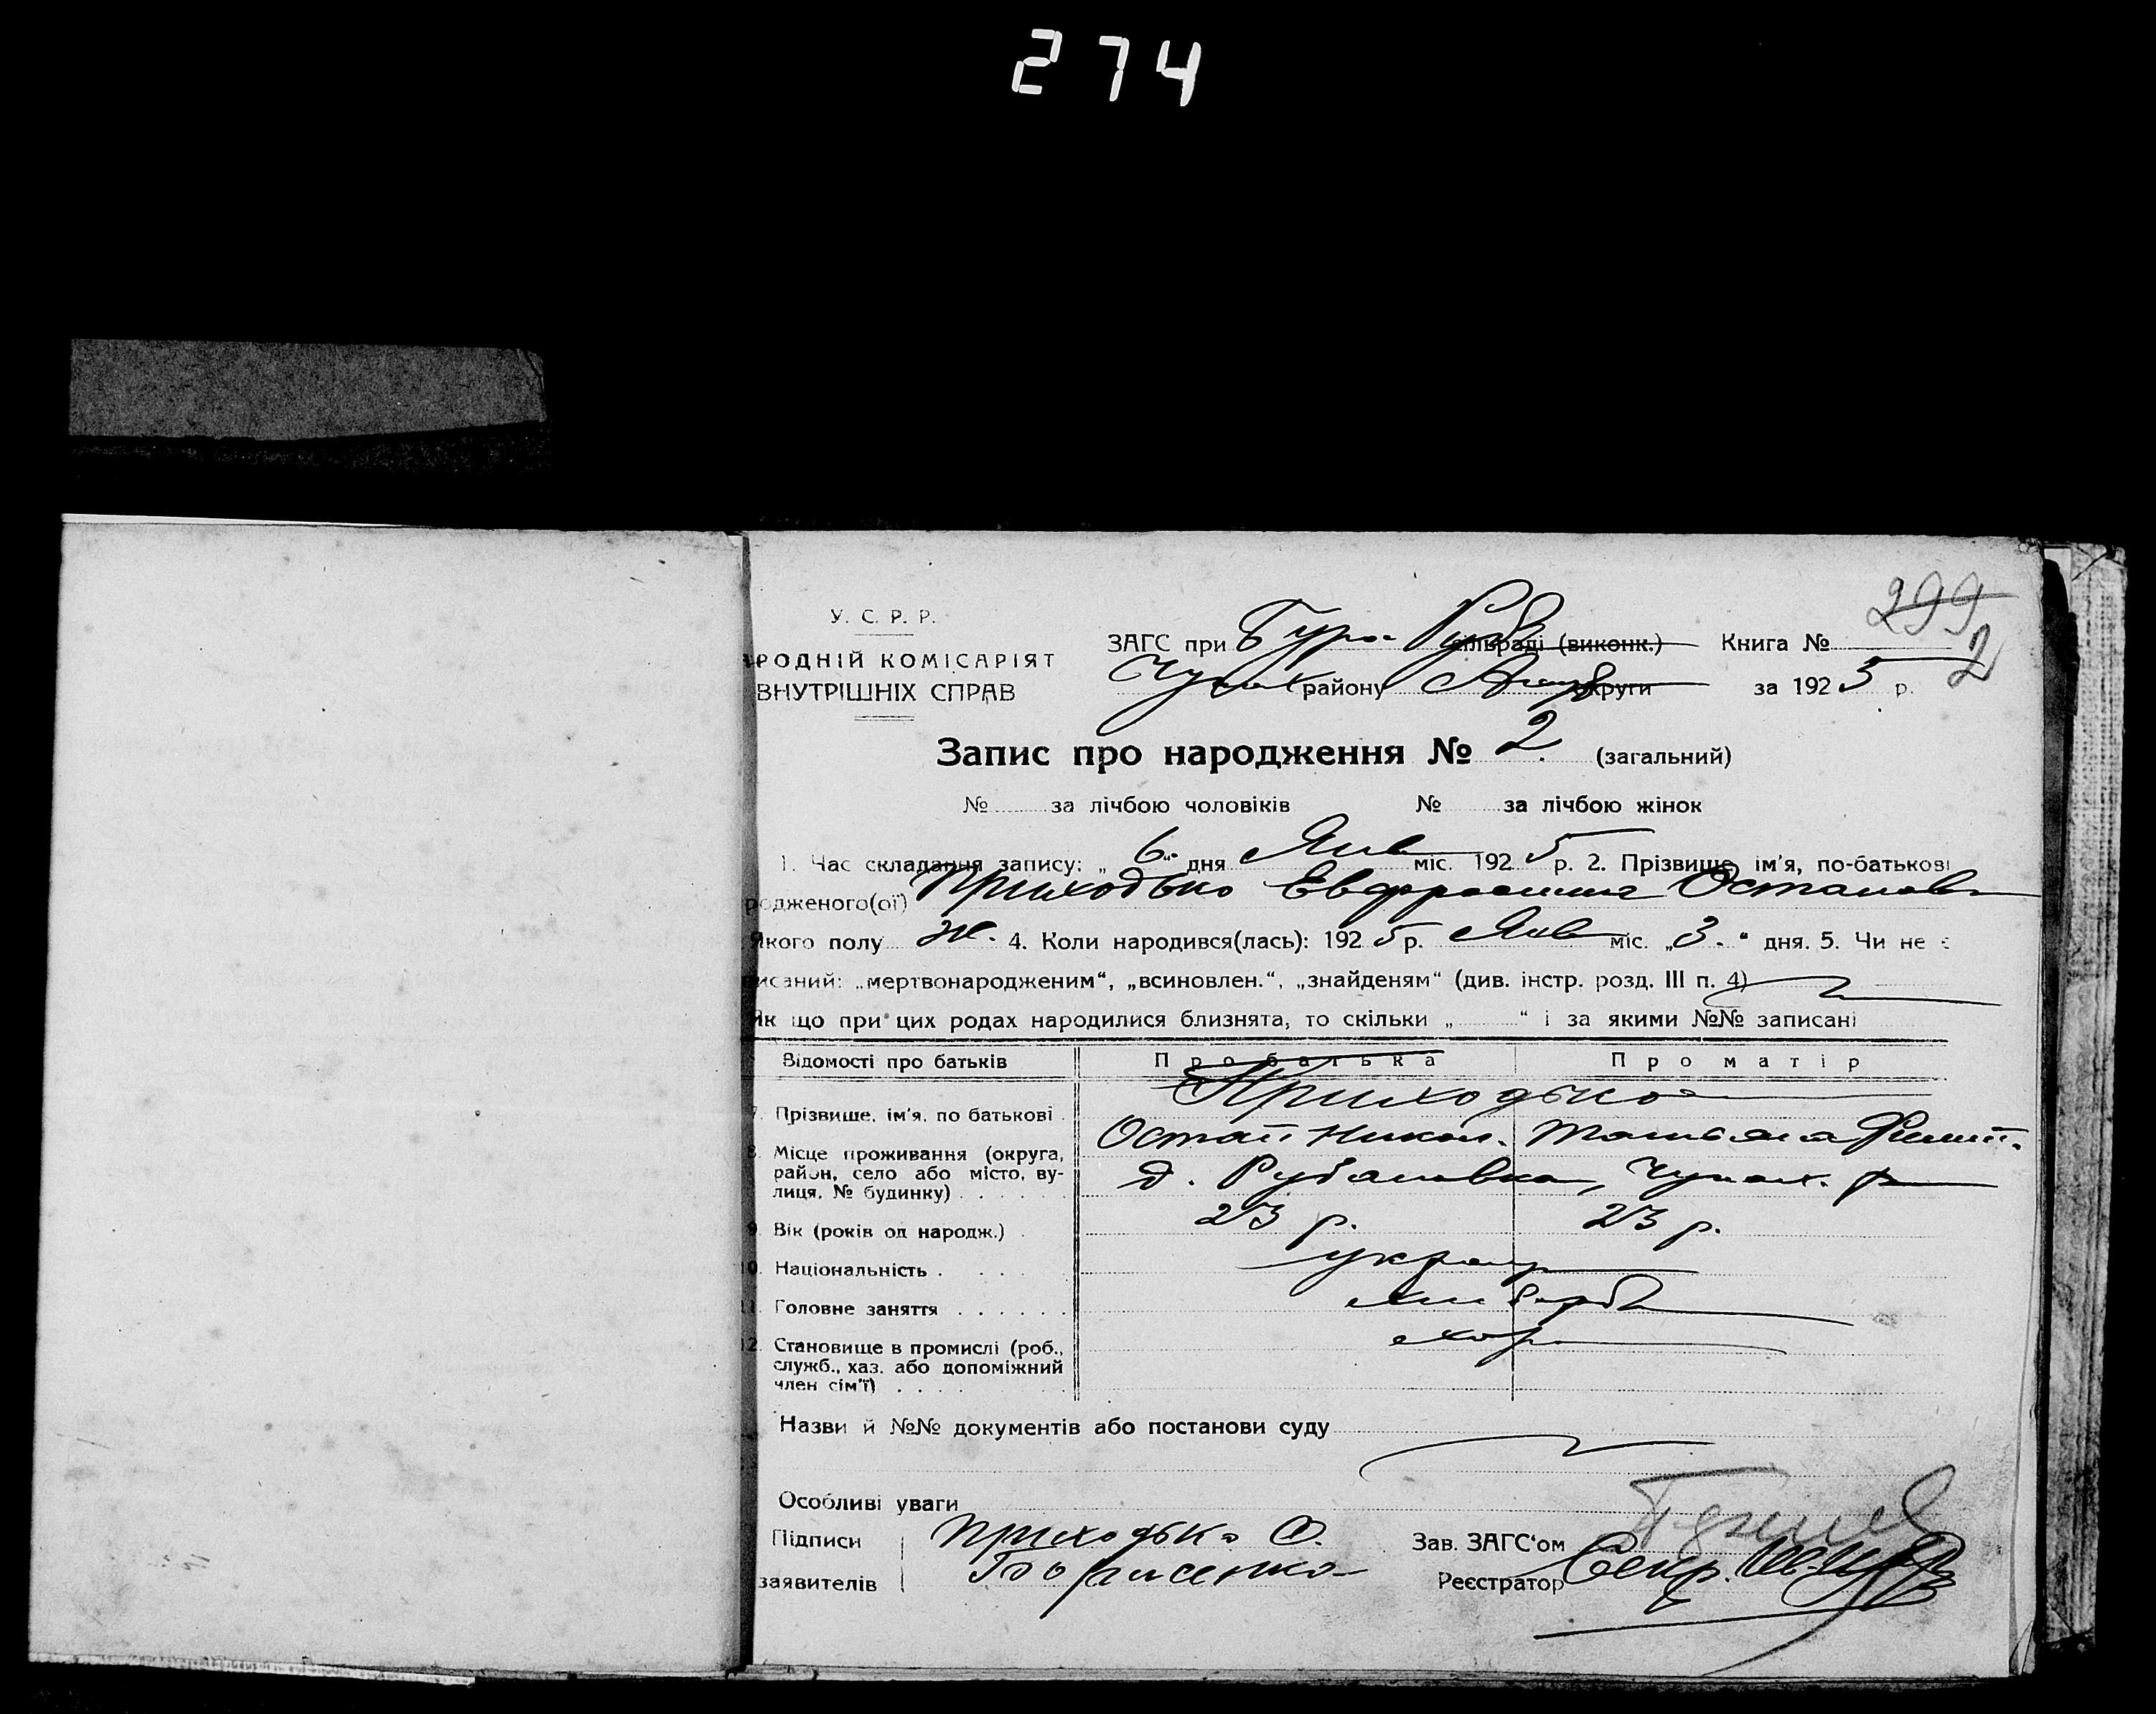 274
299
2
У. С. Р. Р.
РОДНІЙ КОМІСАРІЯТ
ВНУТРІШНІХ СПРАВ
ЗАГС при сільраді (виконк.) Книга №
району округи за 1925 р.
Запис про народження № 2. (загальний)
№ за лічбою чоловіків № за лічбою жінок
1. Час складання запису: „6“ дня Янв міс. 1925 р. 2. Прізвище, ім'я, по-батькові
родженого(ої) Приходько Евфросиния Остапов
якого полу ж. 4. Коли народився(лась): 1925 р. Янв міс. „3.“ дня. 5. Чи не є
писаний: „мертвонародженим“, „всиновлен.“, „знайденям“ (див. інстр. розд. III п. 4)
Як що при цих родах народилися близнята, то скільки „ “ і за якими №№ записані
Відомості про батьків Про батька Про матір
7. Прізвище, ім'я, по батькові Приходько
Остап Никол. Татьяна Филип.
8. Місце проживання (округа, район, село або місто, вулиця, № будинку) д. Рубановка, Чупах. р
9. Вік (років од народж.) 23 р. 23 р.
10. Національність украин
11. Головне заняття хлибороб
12. Становище в промислі (роб., служб., хаз. або допоміжний член сім'ї)
Назви й №№ документів або постанови суду
Особливі уваги
Підписи заявителів Приходько О.
Борисенко
Зав. ЗАГС'ом
Реєстратор Секр.